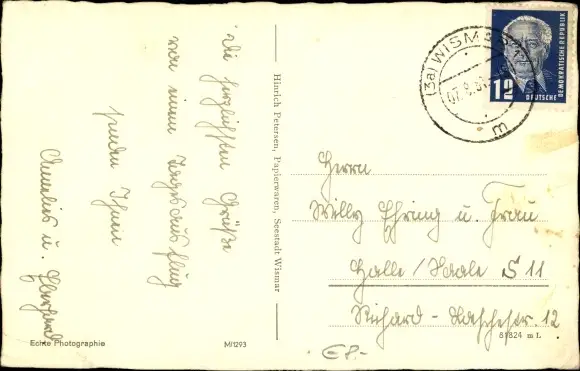 Die herzlichsten Grüße
von einem Tagesausflug
senden Ihnen
Annelies u. Eberhard
Echte Photographie
M/1293
Hinrich Petersen, Papierwaren, Seestadt Wismar
(3a) WISMAR
07.8.51
m
12
DEUTSCHE
DEMOKRATISCHE REPUBLIK
Herrn
Willy Ehring u. Frau
Halle/Saale S 11
Richard-Paschestr. 12
81824 m I.
€8.-